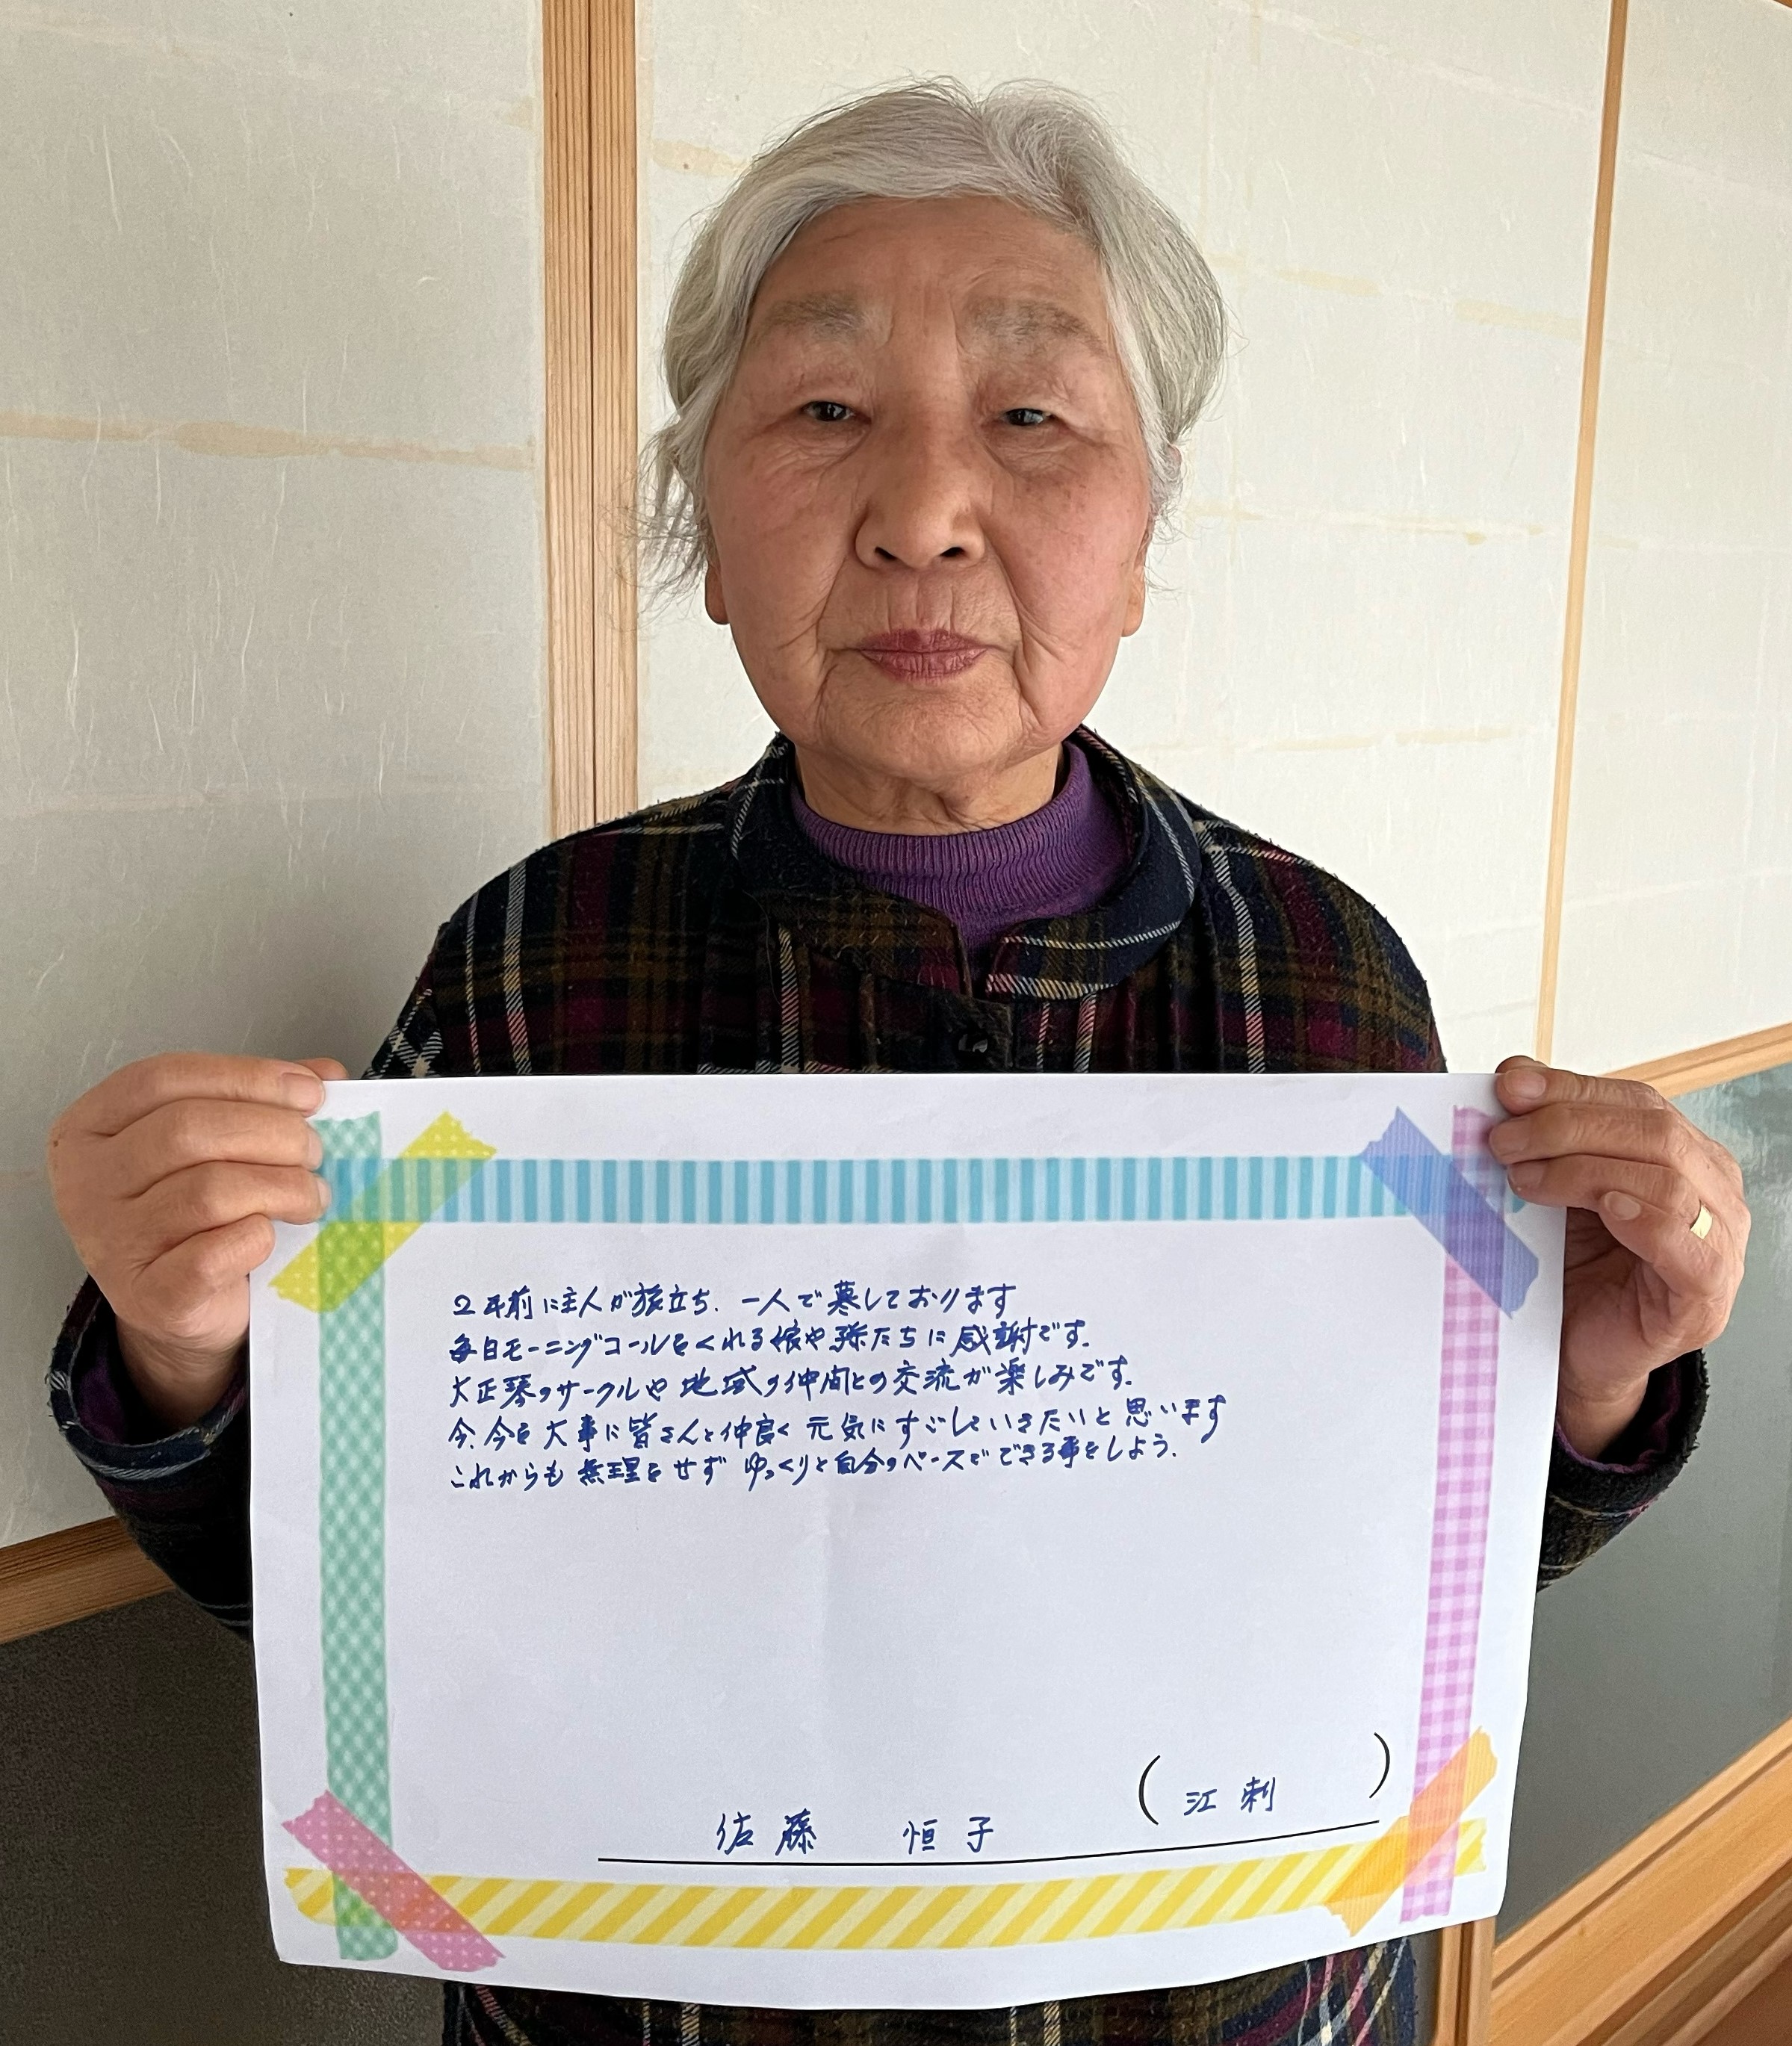 2年前に主人が旅立ち、一人で暮しております
毎日モーニングコールをくれる娘や孫たちに感謝です。
大正琴のサークルや地域の仲間との交流が楽しみです。
今、今を大事に皆さんと仲良く元気にすごしていきたいと思います
これからも無理をせずゆっくりと自分のペースでできる事をしよう。
(江刺)
佐藤 恒子